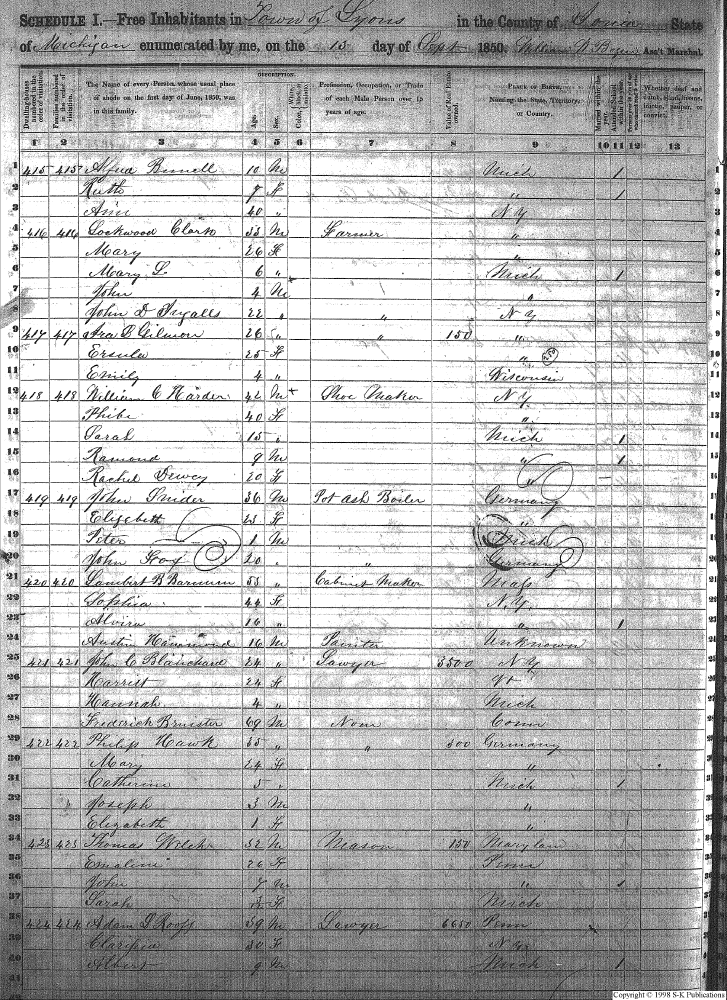 SCHEDULE I.—Free Inhabitants in Town of Lyons in the County of Ionia State
of Michigan enumerated by me, on the 13 day of Sept 1850. Ass't Marshal.
DESCRIPTION.
Dwelling-houses numbered in the order of visitation.
Families numbered in the order of visitation.
The Name of every Person whose usual place of abode on the first day of June, 1850, was in this family.
Age.
Sex.
Profession, Occupation, or Trade of each Male Person over 15 years of age.
Value of Real Estate owned.
PLACE OF BIRTH, Naming the State, Territory, or Country.
1 2 3 4 5 6 7 8 9 10 11 12 13
1 415 415 Alfred 10 M Mich 1
2 Ruth 7 F " 1
3 Ann 40 " N Y
4 416 416 Lockwood Clark 33 M Farmer "
5 Mary 26 F "
6 Mary L 6 " Mich 1
7 John 4 M "
8 John D Ingalls 22 " " N Y
9 417 417 Ara B Gilmon 26 " " 150 "
10 Ersula 25 F "
11 Emily 4 " Wisconsin
12 418 418 William C Harder 42 M Shoe Maker N Y
13 Phibe 40 F "
14 Sarah 15 " Mich 1
15 Ramond 9 M " 1
16 Rachel Dewey 20 F "
17 419 419 John Snider 36 M Pot Ash Boiler Germany
18 Elizebeth 23 F "
19 Peter 1 M Mich
20 John 20 " " Germany
21 420 420 Lambert B Barnum 53 " Cabinet Maker Mass
22 Sophia 44 F N.Y.
23 Alvira 16 " " 1
24 Austin Hammond 16 M Painter Unknown
25 421 421 John C Blanchard 24 " Lawyer 3500 N Y
26 Harriet 24 F Vt
27 Hannah 4 " Mich
28 Frederick 69 M None Conn
29 422 422 Philip Hawk 35 " " 300 Germany
30 Mary 24 F "
31 Catherine 5 " Mich 1
32 Joseph 3 M "
33 Elizabeth 1 F "
34 423 423 Thomas Welch 32 M Mason 150 Marylan
35 Emaline 26 F Penn
36 John 7 M " 1
37 Sarah F Mich
38 424 424 Adam L Rooff 39 M Lawyer 6650 Penn
39 Clarissa 30 F N Y
40 Albert 9 M Mich 1
41
Copyright © 1998 S-K Publications